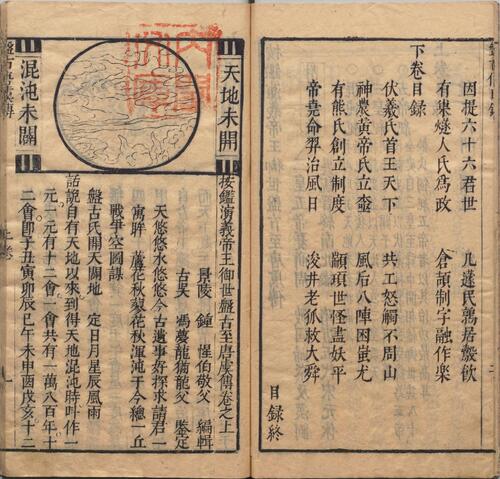 因提六十六君世　九蓬氏鶉居鷇飲
有巢燧人氏為政　倉頡制字融作樂
下卷目錄
伏羲氏首王天下　共工怒觸不周山
神農黃帝氏立　風后八陣困蚩尤
有熊氏創立制度　顓頊世怪盡妖平
帝堯命羿治風日　浚井老狐救大舜
目錄終
天地未開
混沌未闢
按鑑演義帝王御世盤古至唐虞傳卷之上
景陵　鍾　惺伯敬父　編輯
古吳　馮夢龍猶龍父　鑒定
天悠悠水悠悠今古遺事好探求請君一
寓眸　蘆花秋蓼花秋渾沌于今總一丘
戰爭空圖謀
盤古氏開天闢地　定日月星辰風雨
話說自有天地以來到得天地混沌時叫作一
元一元有十二會一會共有一萬八百年十
二會即子丑寅卯辰巳午未申酉戌亥十二